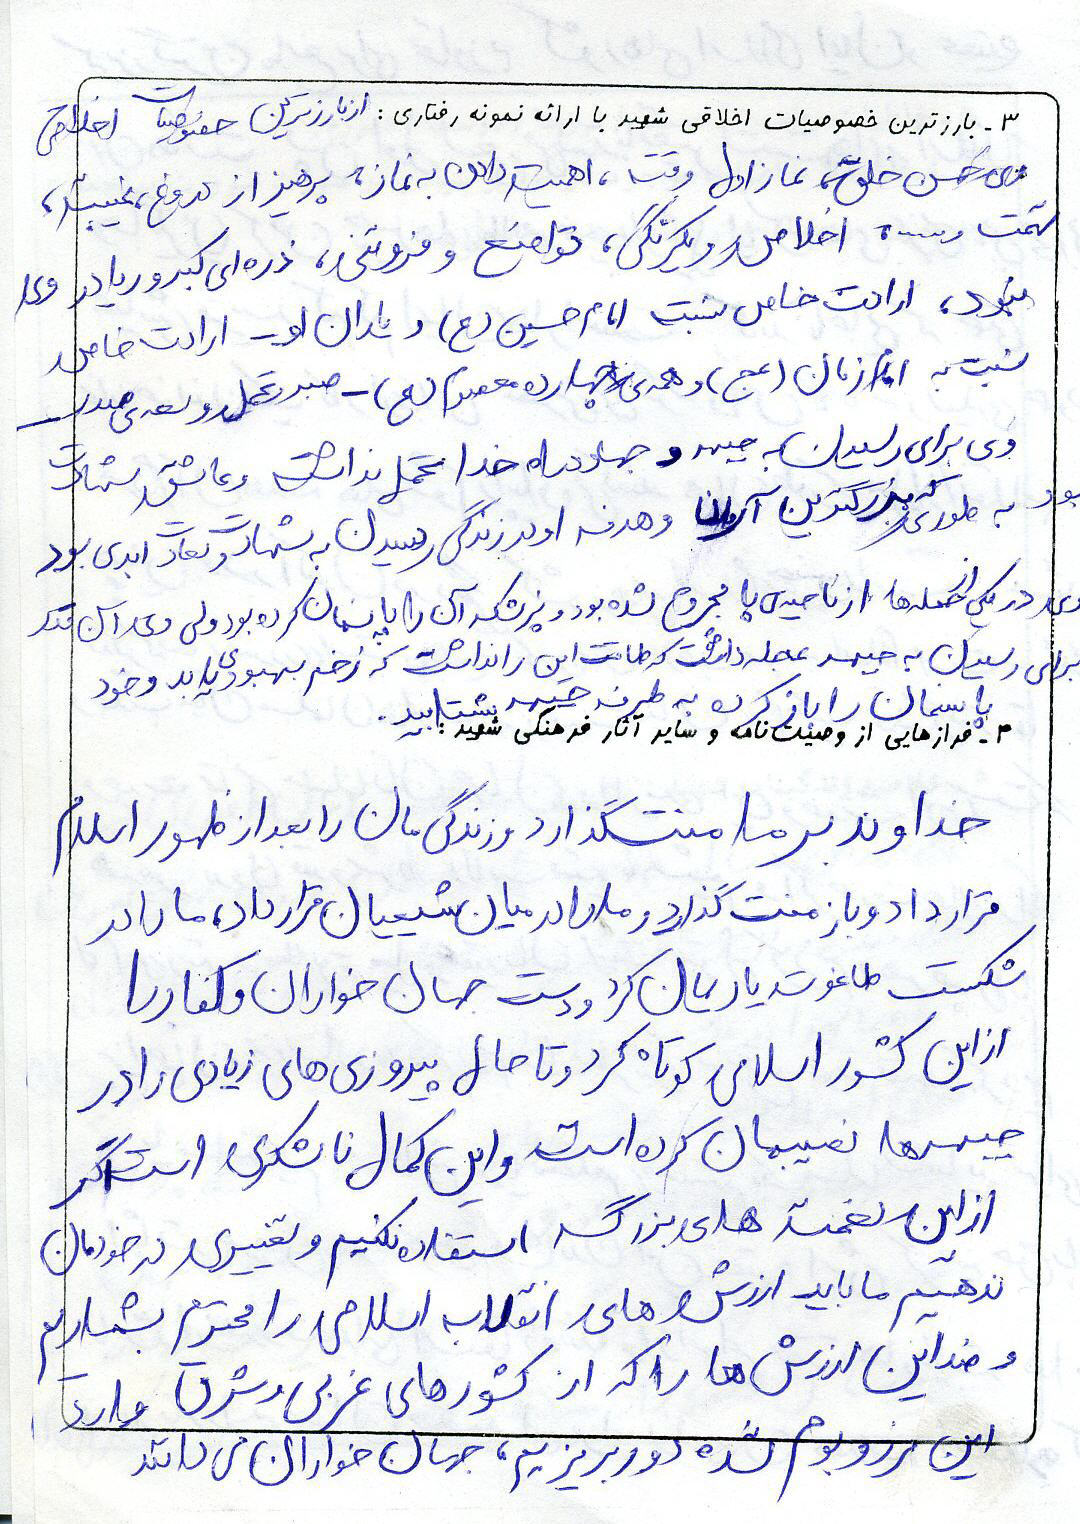 ۳ـ بارزترین خصوصیات اخلاقی شهید با ارائه نمونه رفتاری : از بارزترین خصوصیات اخلاقی
وی حسن خلق، نماز اول وقت، اهمیت دادن به نماز، پرهیز از دروغ، غیبت،
تهمت و ...، اخلاص و یکرنگی، تواضع و فروتنی، ذره‌ای کبر و ریا در وی
نبود، ارادت خاص نسبت امام حسین (ع) و یاران او ـ ارادت خاص
نسبت به امام زمان (عج) و همه‌ی چهارده معصوم (ع) ـ صبر و تحمل و سعه‌ی صدر ـ
وی برای رسیدن به جبهه و جهاد در راه خدا تحمل نداشت و عاشق شهادت
بود به طوری که بزرگترین آرمان و هدف او در زندگی رسیدن به شهادت و سعادت ابدی بود
وی در یکی از حمله‌ها از ناحیه‌ی پا مجروح شده بود و پزشک آن را پانسمان کرده بود ولی وی آن قدر
برای رسیدن به جبهه عجله داشت که طاقت این را نداشت که زخم بهبودی یابد و خود
پانسمان را باز کرده به طرف جبهه شتابید.
۴ـ فرازهایی از وصیت‌نامه و سایر آثار فرهنگی شهید :
خداوند بر ما منت گذارد و زندگی مان را بعد از ظهور اسلام
قرار داد و باز منت گذارد و ما را در میان شیعیان قرار داد، ما را در
شکست طاغوت یاریمان کرد و دست جهان خواران و کفار را
از این کشور اسلامی کوتاه کرد و تا حال پیروزی های زیادی را در
جبهه‌ها نصیبمان کرده است و این کمال ناشکری است اگر
از این نعمت های بزرگ استفاده نکنیم و تغییری در خودمان
ندهیم ما باید ارزش های انقلاب اسلامی را محترم بشماریم
و ضد این ارزش ها را که از کشورهای غربی و شرق وارد
این مرز و بوم شده دور بریزیم، جهان خواران می دانند